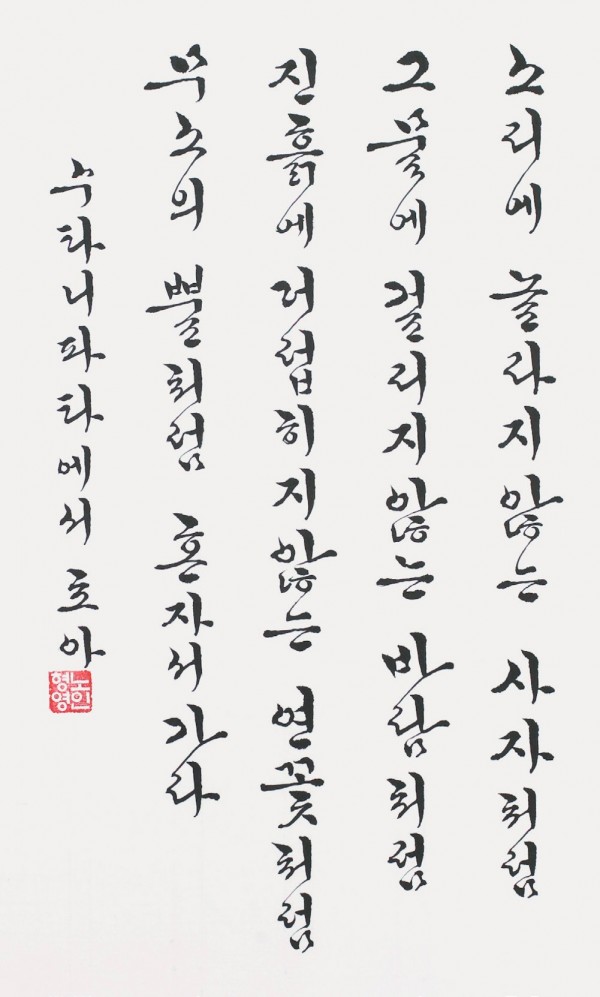 소리에 놀라지않는 사자처럼
그물에 걸리지않는 바람처럼
진흙에 더럽히지않는 연꽃처럼
무소의 뿔처럼 혼자서가라
수타니파타에서
노인
형영